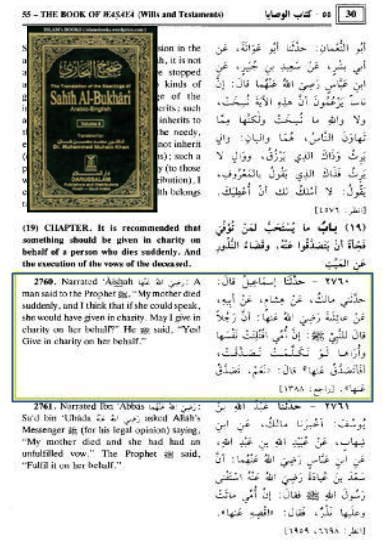 55 – THE BOOK OF WAṢAYA (Wills and Testaments)
٥٥ - كتاب الوصايا
30
ISLAM'S BOOKS I islamsbooks.wordpress.com I
صحيح البخاري
The Translation of the Meanings of
Sahîh Al-Bukhâri
Arabic-English
Translated by:
Dr. Muhammad Muhsin Khan
DARUSSALAM
أبو النُّعْمَانِ: حَدَّثَنَا أَبُو عَوَانَةَ، عَنْ
أَبِي بِشْرٍ، عَنْ سَعِيدِ بْنِ جُبَيْرٍ، عَنِ
ابْنِ عَبَّاسٍ رَضِيَ اللهُ عَنْهُمَا قَالَ: إِنَّ
نَاسًا يَزْعُمُونَ أَنَّ هٰذِهِ الْآيَةَ نُسِخَتْ،
وَلَا وَاللهِ مَا نُسِخَتْ وَلٰكِنَّهَا مِمَّا
تَهَاوَنَ النَّاسُ، هُمَا وَالِيَانِ: وَالٍ
يَرِثُ وَذَاكَ الَّذِي يَرْزُقُ، وَوَالٍ لَا
يَرِثُ فَذَاكَ الَّذِي يَقُولُ بِالْمَعْرُوفِ،
يَقُولُ: لَا أَمْلِكُ لَكَ أَنْ أُعْطِيَكَ.
[انظر: ٤٥٧٦]
(19) CHAPTER. It is recommended that
something should be given in charity on
behalf of a person who dies suddenly. And
the execution of the vows of the deceased.
(١٩) بَابُ مَا يُسْتَحَبُّ لِمَنْ تُوُفِّيَ
فَجْأَةً أَنْ يَتَصَدَّقُوا عَنْهُ، وَقَضَاءُ النُّذُورِ
عَنِ الْمَيِّتِ
2760. Narrated 'Āishah رَضِيَ اللهُ عَنْهَا: A
man said to the Prophet ﷺ, "My mother died
suddenly, and I think that if she could speak,
she would have given in charity. May I give in
charity on her behalf?" He ﷺ said, "Yes!
Give in charity on her behalf."
٢٧٦٠ - حَدَّثَنَا إِسْمَاعِيلُ قَالَ:
حَدَّثَنِي مَالِكٌ، عَنْ هِشَامٍ، عَنْ أَبِيهِ،
عَنْ عَائِشَةَ رَضِيَ اللهُ عَنْهَا: أَنَّ رَجُلًا
قَالَ لِلنَّبِيِّ ﷺ: إِنَّ أُمِّي افْتُلِتَتْ نَفْسُهَا
وَأُرَاهَا لَوْ تَكَلَّمَتْ تَصَدَّقَتْ،
أَفَأَتَصَدَّقُ عَنْهَا؟ قَالَ: «نَعَمْ، تَصَدَّقْ
عَنْهَا». [راجع: ١٣٨٨]
2761. Narrated Ibn 'Abbās رَضِيَ اللهُ عَنْهُمَا:
Sa'd bin 'Ubāda رَضِيَ اللهُ عَنْهُ asked Allāh's
Messenger ﷺ (for his legal opinion) saying,
"My mother died and she had had an
unfulfilled vow." The Prophet ﷺ said,
"Fulfil it on her behalf."
٢٧٦١ - حَدَّثَنَا عَبْدُ اللهِ بْنُ
يُوسُفَ: أَخْبَرَنَا مَالِكٌ، عَنِ ابْنِ
شِهَابٍ، عَنْ عُبَيْدِ اللهِ بْنِ عَبْدِ اللهِ،
عَنِ ابْنِ عَبَّاسٍ رَضِيَ اللهُ عَنْهُمَا: أَنَّ
سَعْدَ بْنَ عُبَادَةَ رَضِيَ اللهُ عَنْهُ اسْتَفْتَى
رَسُولَ اللهِ ﷺ فَقَالَ: إِنَّ أُمِّي مَاتَتْ
وَعَلَيْهَا نَذْرٌ، فَقَالَ: «اقْضِهِ عَنْهَا».
[انظر: ٦٦٩٨، ٦٩٥٩]